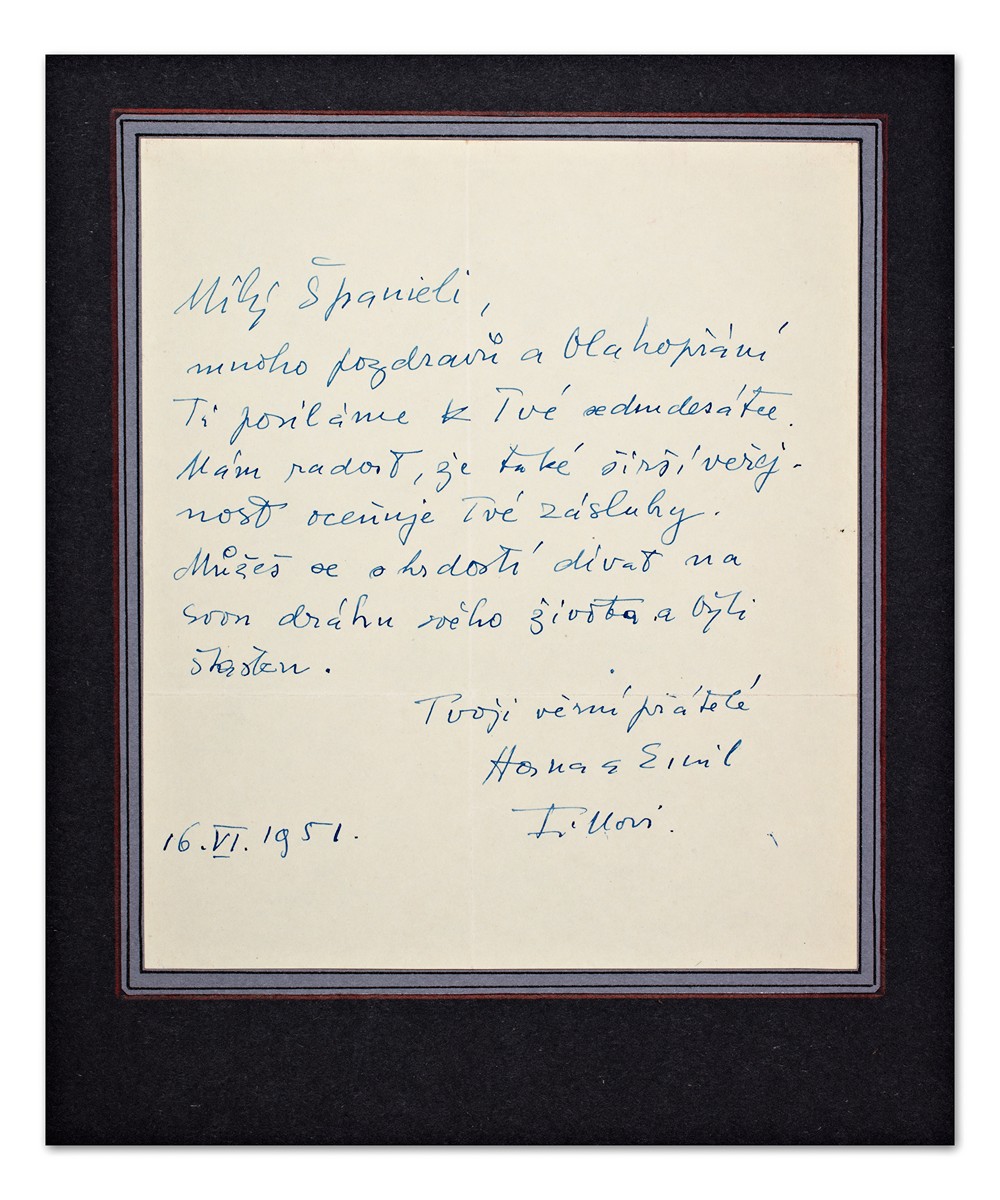 Milý Španieli,
mnoho pozdravů a blahopřání
Ti posíláme k Tvé sedmdesátce.
Mám radost, že také širší veřej-
nost oceňuje Tvé zásluhy.
Můžeš se s hrdostí dívat na
svou dráhu svého života a býti
šťasten.
Tvoji věrní přátelé
Hana a Emil
Fillovi.
16.VI.1951.